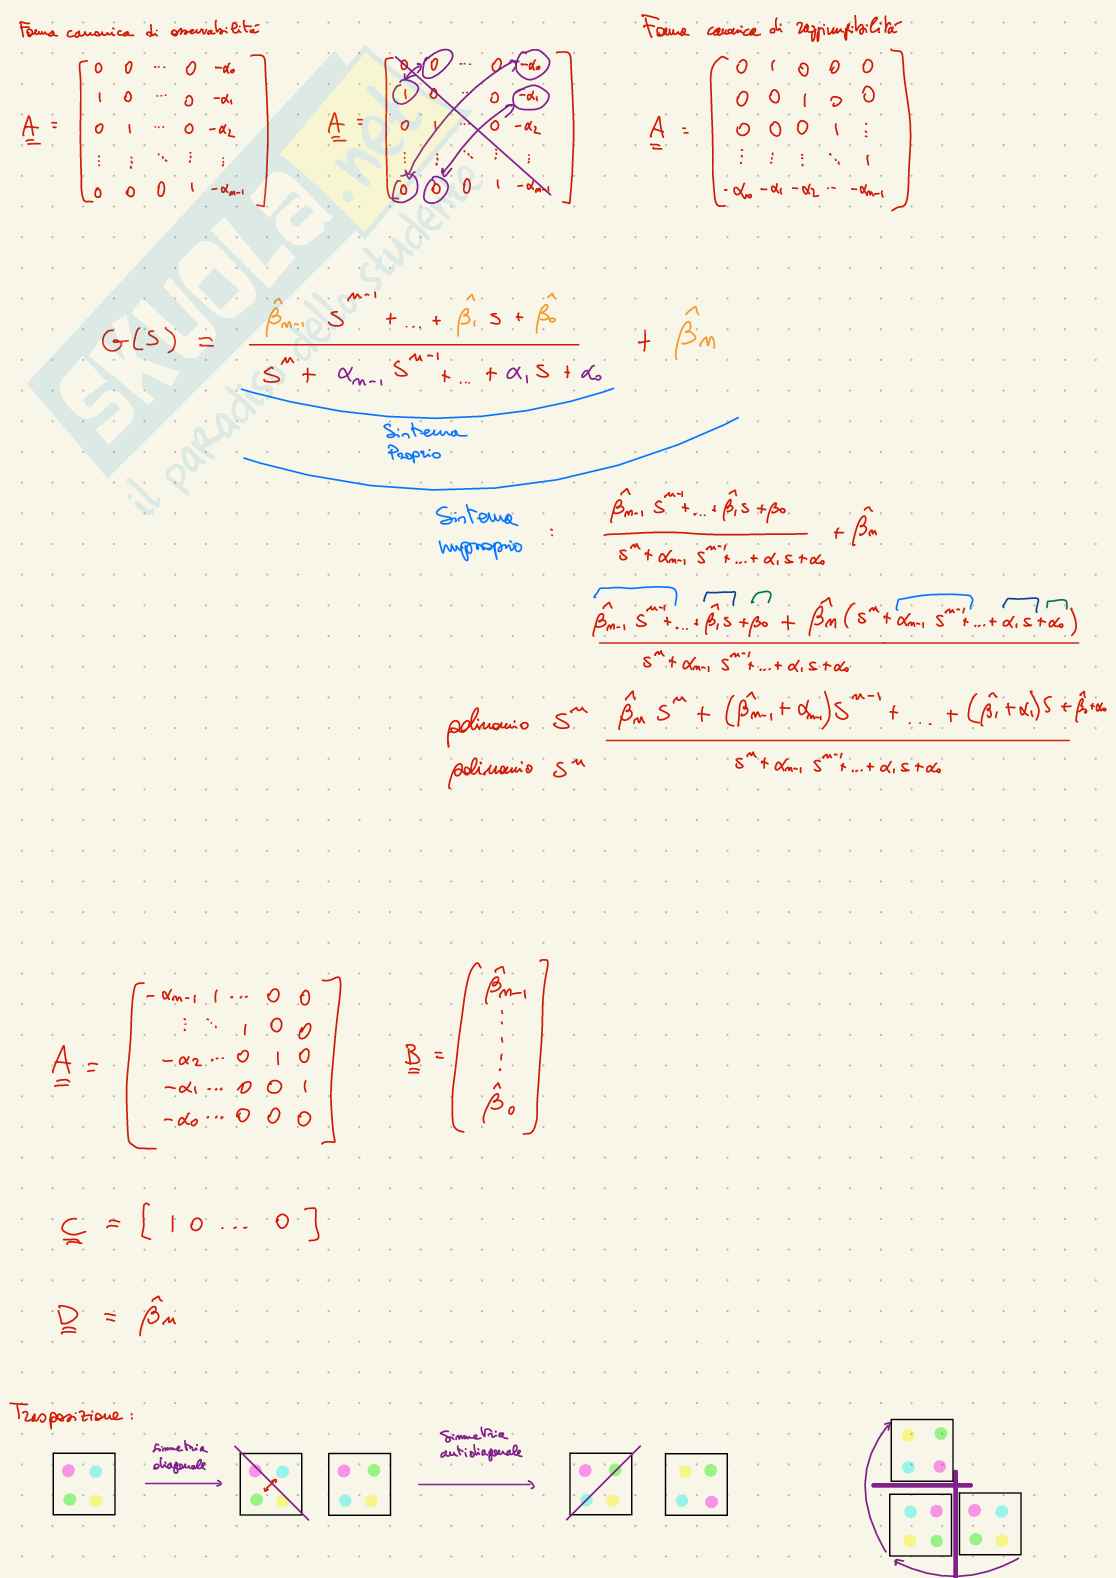 Forma canonica di osservabilità
A = [ 0 0 ... 0 -α₀
1 0 ... 0 -α₁
0 1 ... 0 -α₂
⋮ ⋮ ⋱ ⋮ ⋮
0 0 0 1 -αₙ₋₁ ]
A = [ 0 0 ... 0 -α₀
1 0 ... 0 -α₁
0 1 ... 0 -α₂
⋮ ⋮ ⋱ ⋮ ⋮
0 0 0 1 -αₙ₋₁ ]
Forma canonica di raggiungibilità
A = [ 0 1 0 0 0
0 0 1 0 0
0 0 0 1 ⋮
⋮ ⋮ ⋮ ⋱ 1
-α₀ -α₁ -α₂ ... -αₙ₋₁ ]
SKUOLA.net
il paradiso dello studente
G(s) = (β̂ₙ₋₁ sⁿ⁻¹ + ... + β̂₁ s + β̂₀) / (sⁿ + αₙ₋₁ sⁿ⁻¹ + ... + α₁ s + α₀) + β̂ₙ
Sistema
Proprio
Sistema
Improprio :
(β̂ₙ₋₁ sⁿ⁻¹ + ... + β̂₁ s + β₀) / (sⁿ + αₙ₋₁ sⁿ⁻¹ + ... + α₁ s + α₀) + β̂ₙ
(β̂ₙ₋₁ sⁿ⁻¹ + ... + β̂₁ s + β₀ + β̂ₙ (sⁿ + αₙ₋₁ sⁿ⁻¹ + ... + α₁ s + α₀)) / (sⁿ + αₙ₋₁ sⁿ⁻¹ + ... + α₁ s + α₀)
polinomio sⁿ β̂ₙ sⁿ + (β̂ₙ₋₁ + αₙ₋₁) sⁿ⁻¹ + ... + (β̂₁ + α₁) s + β̂₀ + α₀
polinomio sⁿ sⁿ + αₙ₋₁ sⁿ⁻¹ + ... + α₁ s + α₀
A = [ -αₙ₋₁ 1 ... 0 0
⋮ ⋱ 1 0 0
-α₂ ... 0 1 0
-α₁ ... 0 0 1
-α₀ ... 0 0 0 ]
B = [ β̂ₙ₋₁
⋮
β̂₀ ]
C = [ 1 0 ... 0 ]
D = β̂ₙ
Trasposizione :
Simmetria
diagonale
Simmetria
antidiagonale